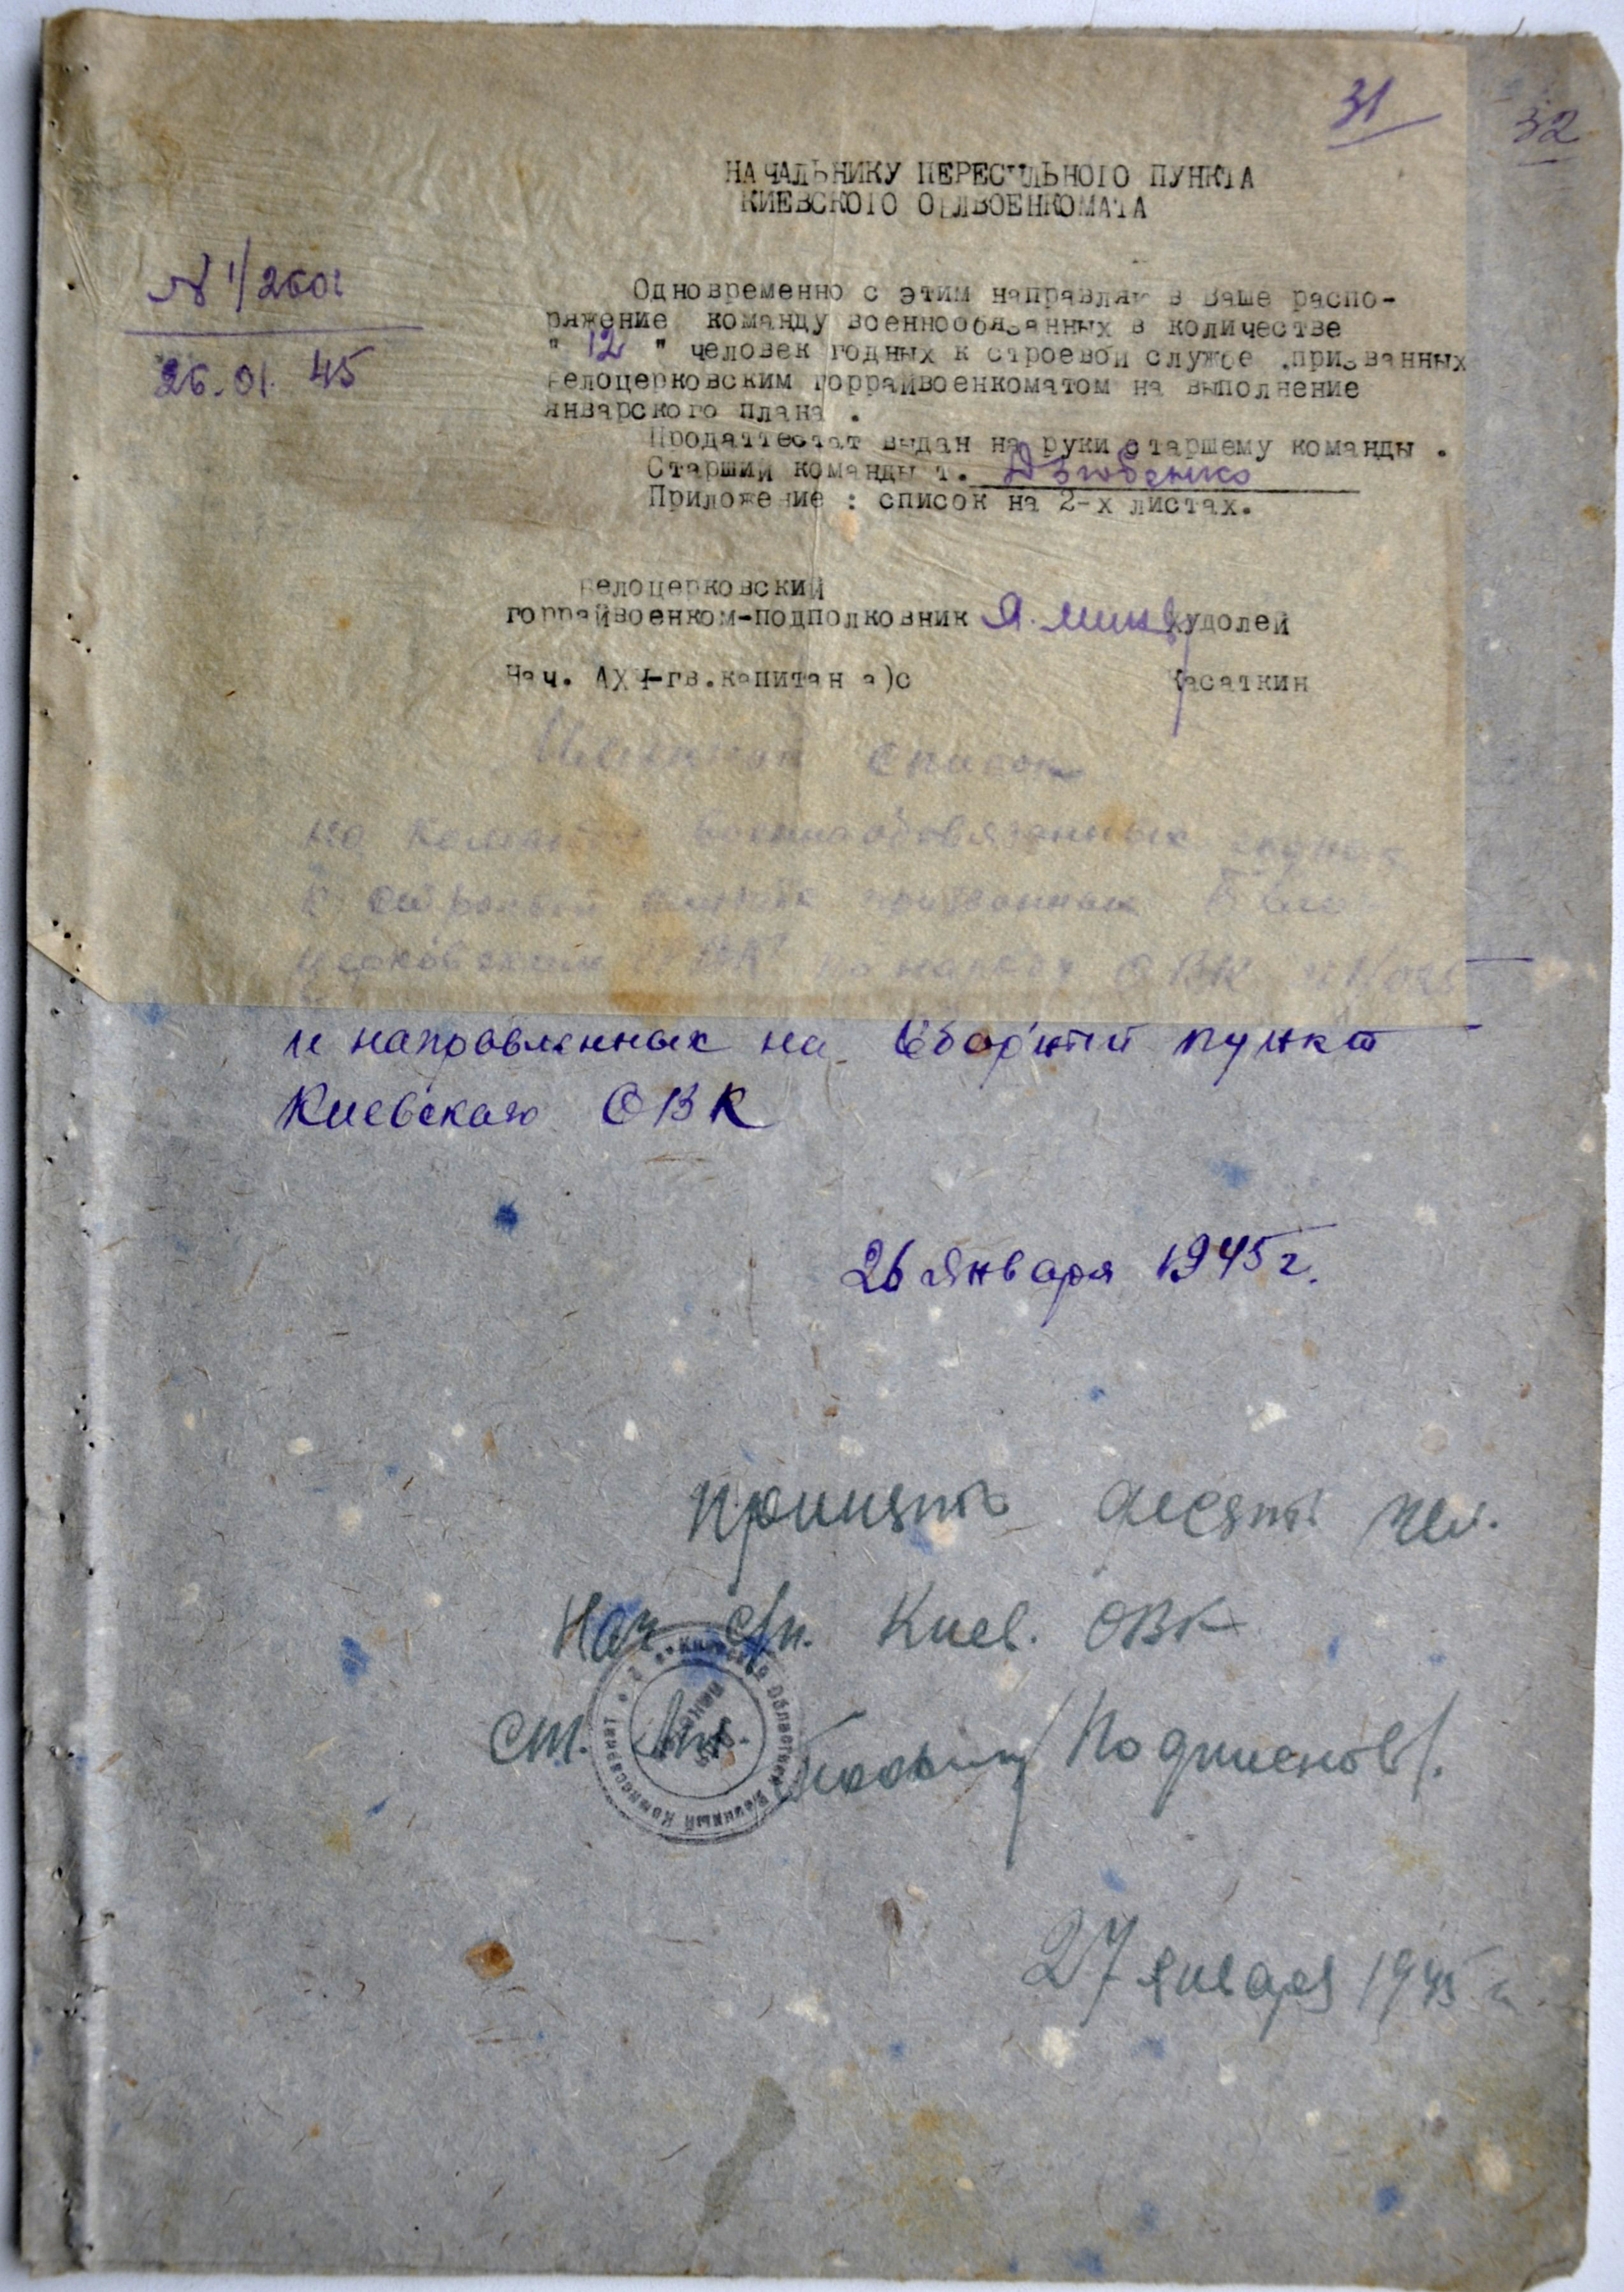 31
32
НАЧАЛЬНИКУ ПЕРЕСЫЛЬНОГО ПУНКТА
КИЕВСКОГО ОБЛВОЕНКОМАТА
№ 1/2601
26.01.45
Одновременно с этим направляю в Ваше распо-
ряжение команду военнообязанных в количестве
" 12 " человек годных к строевой службе .призванных
Белоцерковским горрайвоенкоматом на выполнение
январского плана .
Продаттестат выдан на руки старшему команды .
Старший команды т. Дзюбенко
Приложение : список на 2-х листах.
Белоцерковский
горрайвоенком-подполковник Худолей
Нач. АХЧ-гв.капитан а)с Касаткин
Именной список
на команду военнообязанных годных
к строевой службе призванных Бело-
церковским по наряду ОВК
и направленных на Сборный пункт
Киевского ОВК
26 января 1945 г.
Принять десять чел.
Нач. с/п. Киев. ОВК
ст. лт.
27 января 1945 г.
Киевский Областной Военный Комиссариат